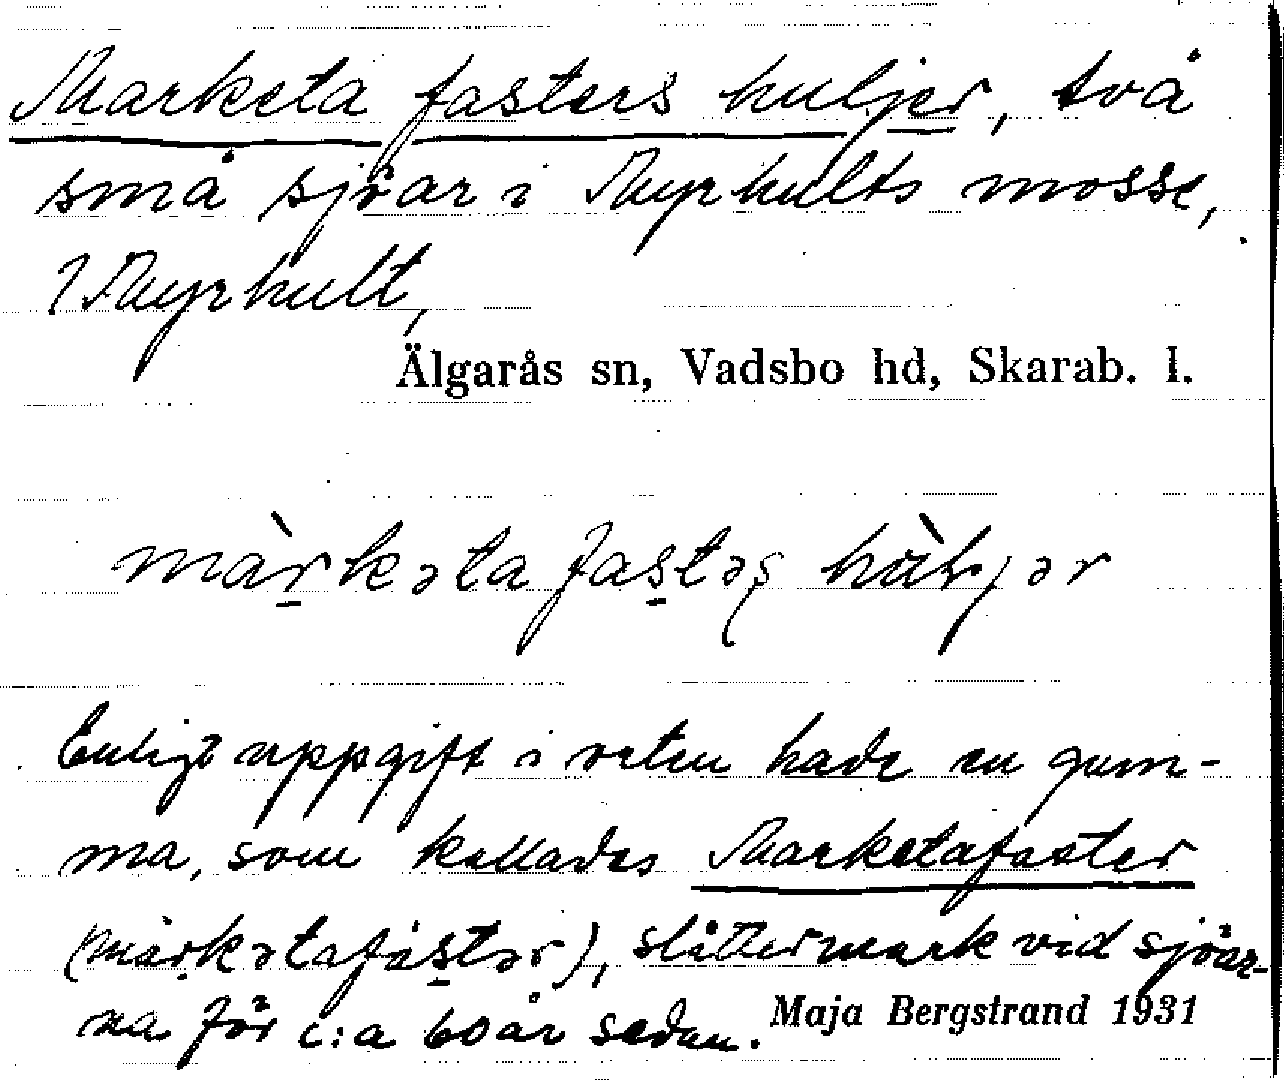 Marketa fasters huljer, två
små sjöar i Myrhults mosse,
? Myrhult,
Älgarås sn, Vadsbo hd, Skarab. l.
màrkəta fastəş
Enligt uppgift i orten hade en gum-
ma, som kallades Marketafaster
(màrkətafàstər), slåttermark vid sjöar-
na för c:a 60 år sedan.
Maja Bergstrand 1931